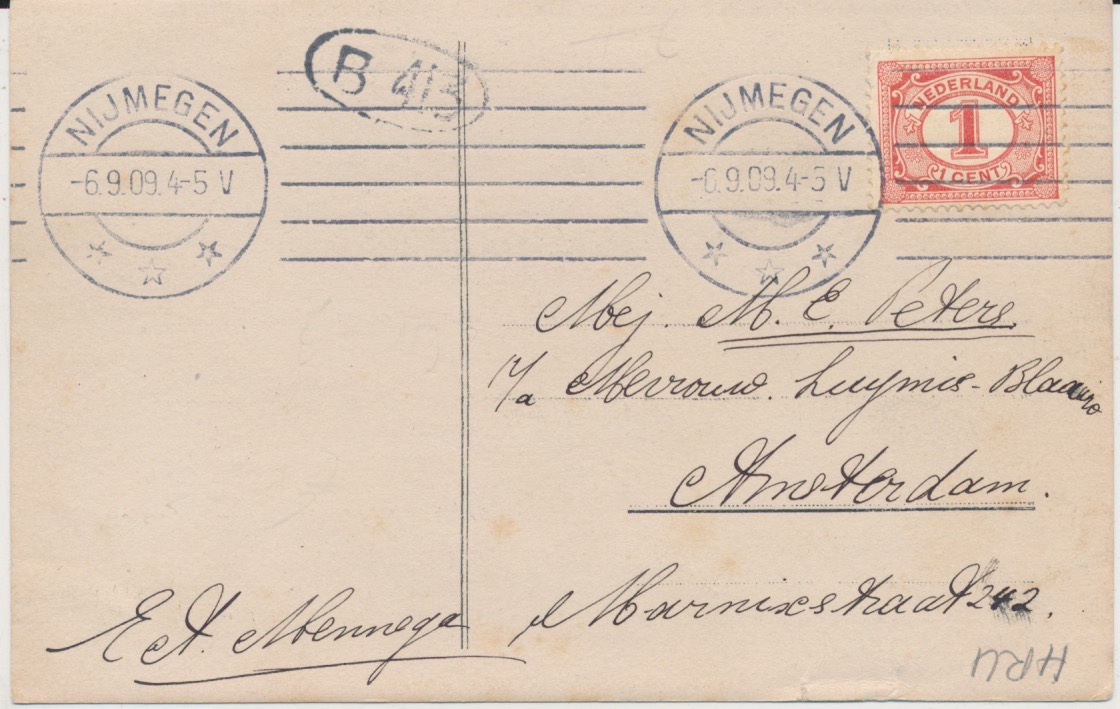 B 413
NIJMEGEN
-6.9.09.4-5 V
NIJMEGEN
-6.9.09.4-5 V
NEDERLAND
1
1 CENT
Mej. M. E. Peters
p/a Mevrouw. Luymis-Blaauw
Amsterdam.
Marnixstraat 242.
E A. Mennega
HRU